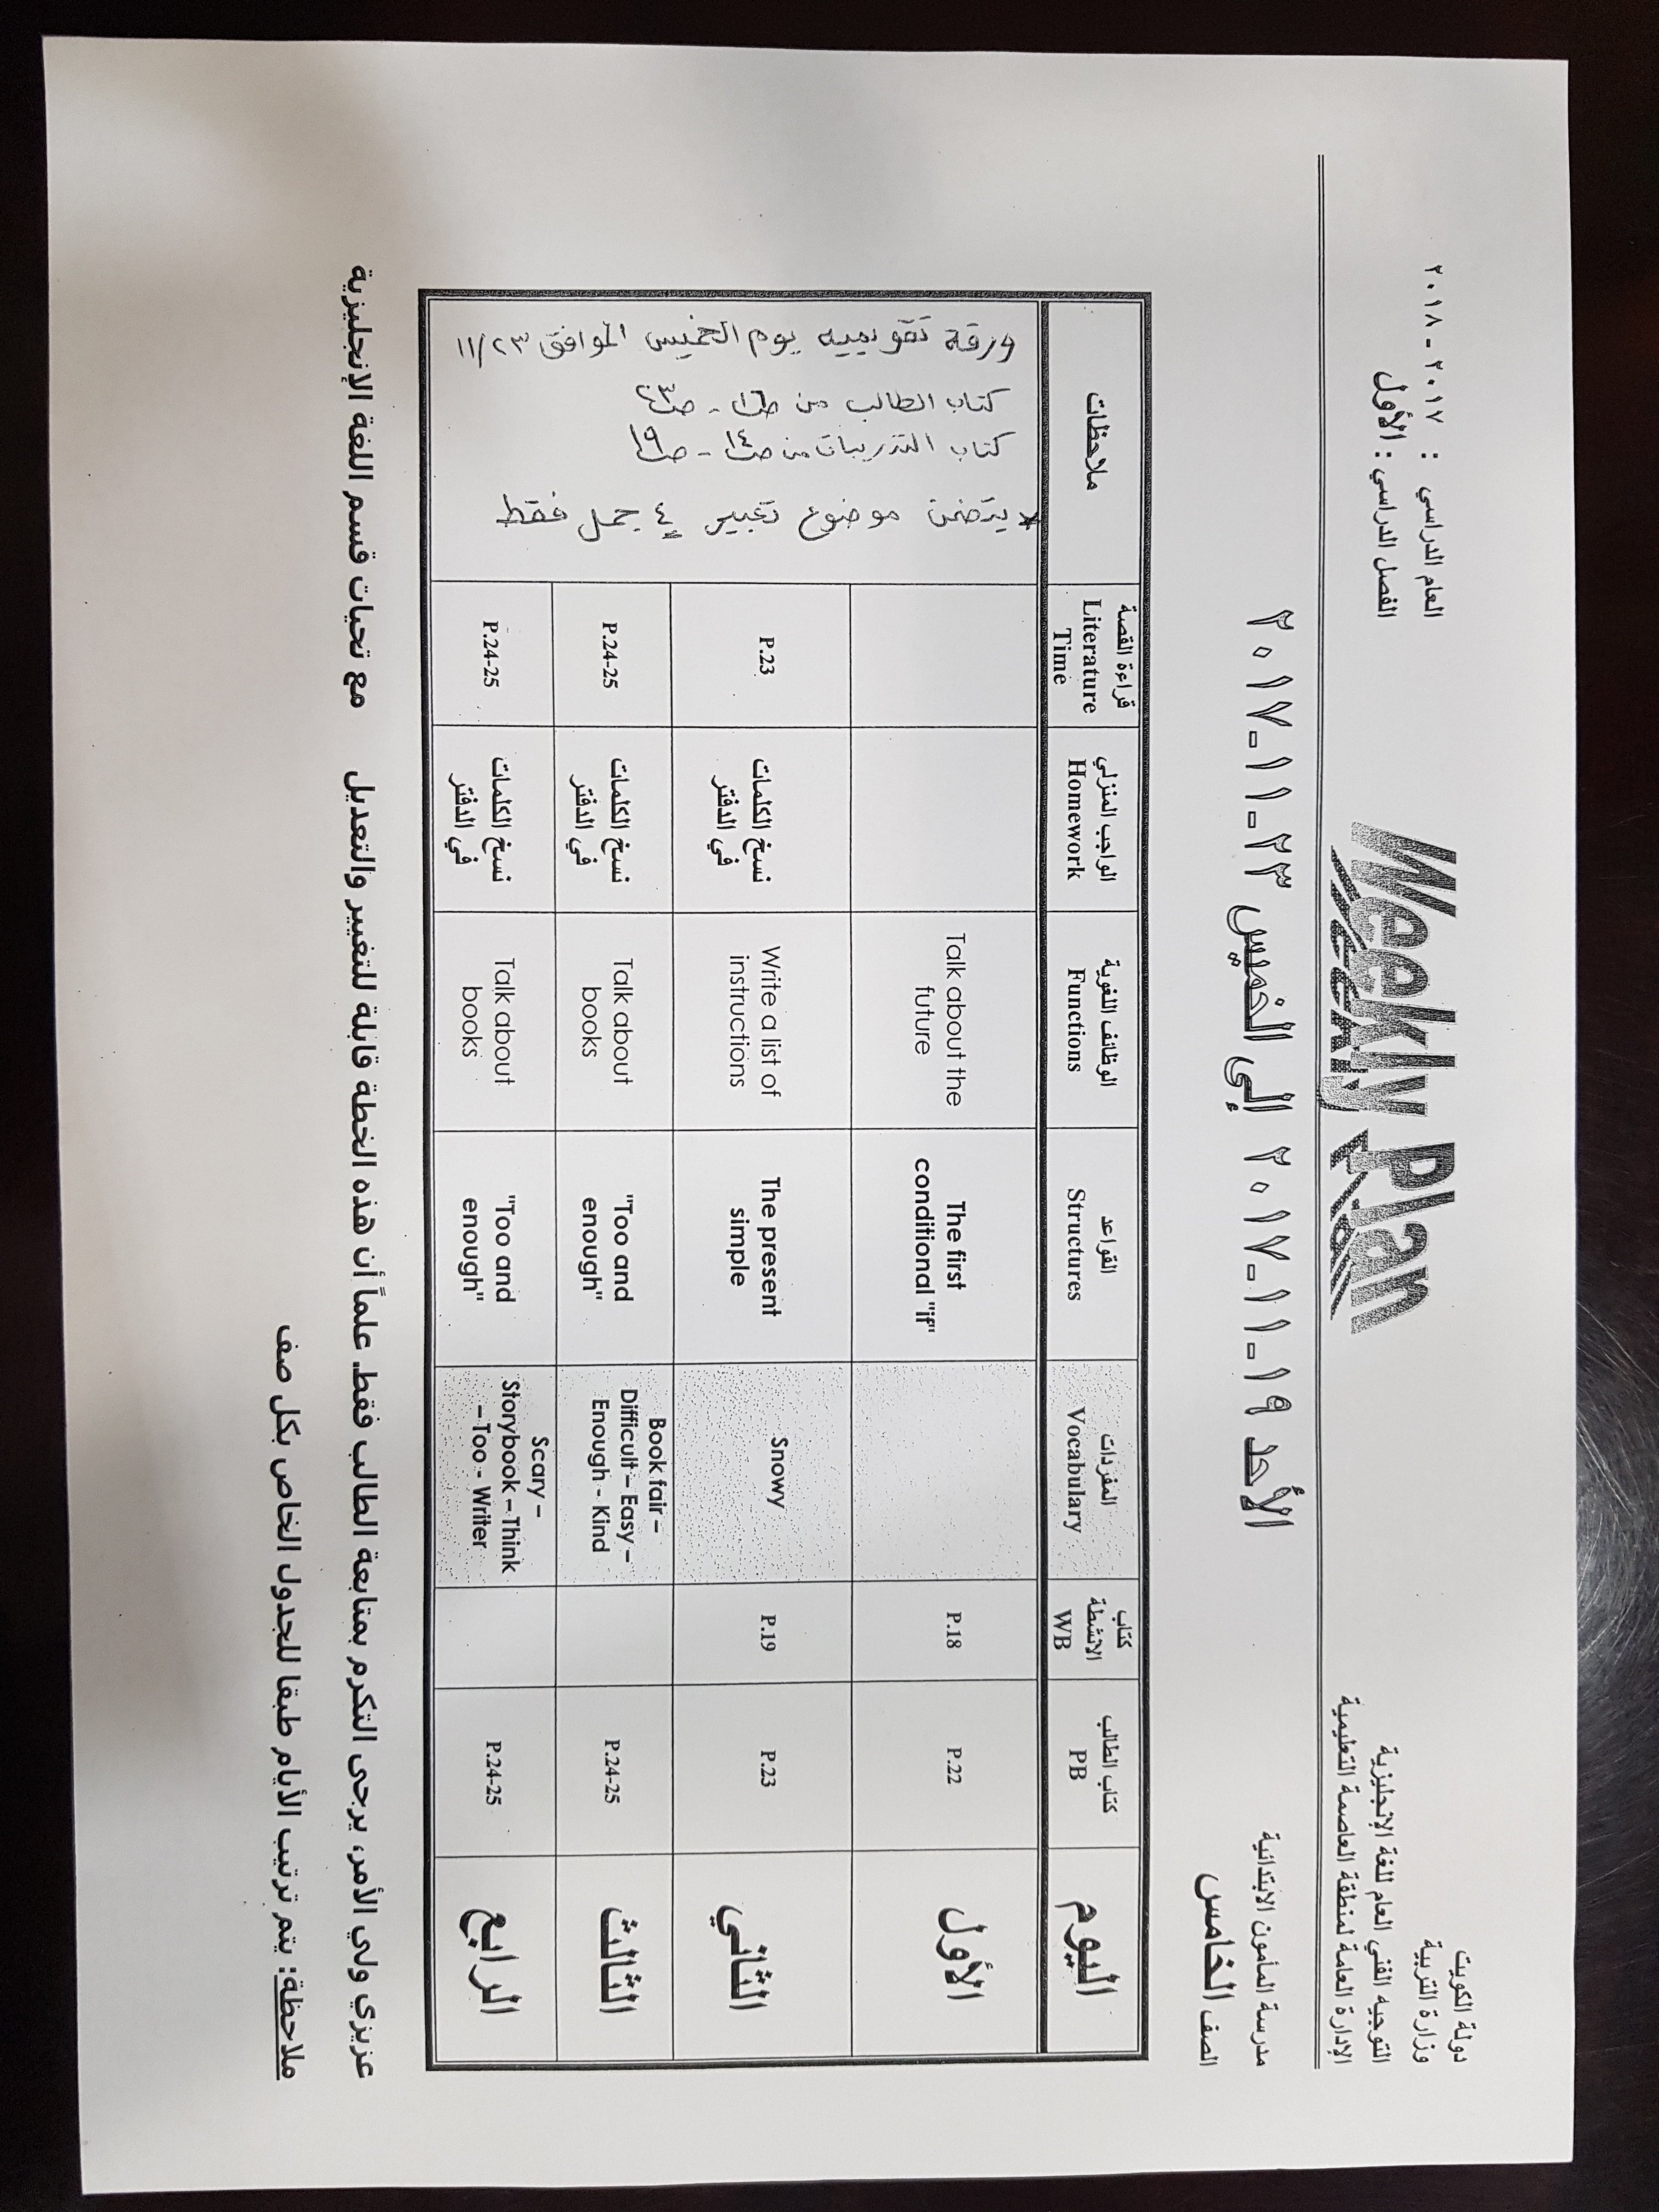 دولة الكويت
وزارة التربية
التوجيه الفني العام للغة الإنجليزية
الإدارة العامة لمنطقة العاصمة التعليمية
Weekly Plan
العام الدراسي : ٢٠١٧ - ٢٠١٨
الفصل الدراسي : الأول
مدرسة المأمون الابتدائية
الصف الخامس
الأحد ١٩-١١-٢٠١٧ إلى الخميس ٢٣-١١-٢٠١٧
اليوم
كتاب الطالب
PB
كتاب
الأنشطة
WB
المفردات
Vocabulary
القواعد
Structures
الوظائف اللغوية
Functions
الواجب المنزلي
Homework
قراءة القصة
Literature
Time
ملاحظات
الأول
P.22
P.18
The first
conditional "if"
Talk about the
future
الثاني
P.23
P.19
Snowy
The present
simple
Write a list of
instructions
نسخ الكلمات
في الدفتر
P.23
الثالث
P.24-25
Book fair –
Difficult – Easy –
Enough - Kind
"Too and
enough"
Talk about
books
نسخ الكلمات
في الدفتر
P.24-25
الرابع
P.24-25
Scary –
Storybook – Think
– Too - Writer
"Too and
enough"
Talk about
books
نسخ الكلمات
في الدفتر
P.24-25
ورقة تقويميه يوم الخميس الموافق ١١/٢٣
كتاب الطالب من
كتاب التدريبات من ص١٤ - ص١٩
* يتضمن موضوع تعبير ٤ جمل فقط
عزيزي ولي الأمر، يرجى التكرم بمتابعة الطالب فقط. علماً أن هذه الخطة قابلة للتغيير والتعديل مع تحيات قسم اللغة الإنجليزية
ملاحظة: يتم ترتيب الأيام طبقا للجدول الخاص بكل صف